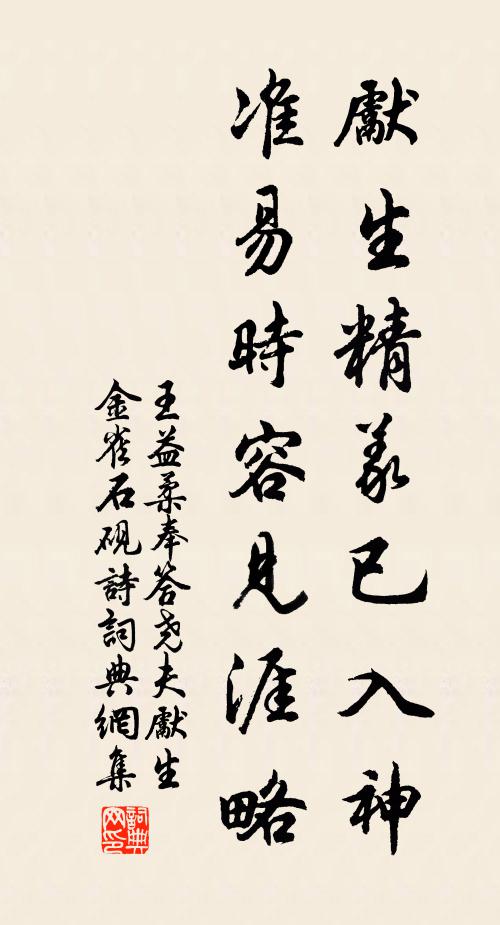 獻生精義已入神
准易時容見涯略
王益柔奉答尧夫獻生
金雀石硯詩詞典網集
詞典
网印